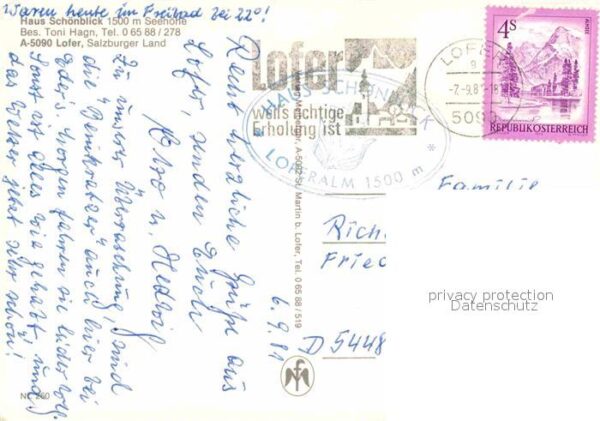 Waren heute im Freibad bei 22°!
Haus Schönblick 1500 m Seehöhe
Bes. Toni Hagn, Tel. 0 65 88 / 278
A-5090 Lofer, Salzburger Land
Recht herzliche Grüße aus
Lofer, senden Euch
u. Hedwig
Zu unserer Überraschung sind
die auch hier bei
Eder's, morgen fahren sie leider
Sonst ist alles wie gehabt, und
das Wetter jetzt sehr schön!
6.9.81
Nr. 260
A-5092 St. Martin b. Lofer, Tel. 0 65 88 / 519
Lofer
weils richtige
Erholung ist
HAUS SCHÖNBLICK
LOFERALM 1500 m *
LOFER
9
-7.-9.81-18
5090
4S
REPUBLIK ÖSTERREICH
Familie
Rich
Fried
D 5448
privacy protection
Datenschutz